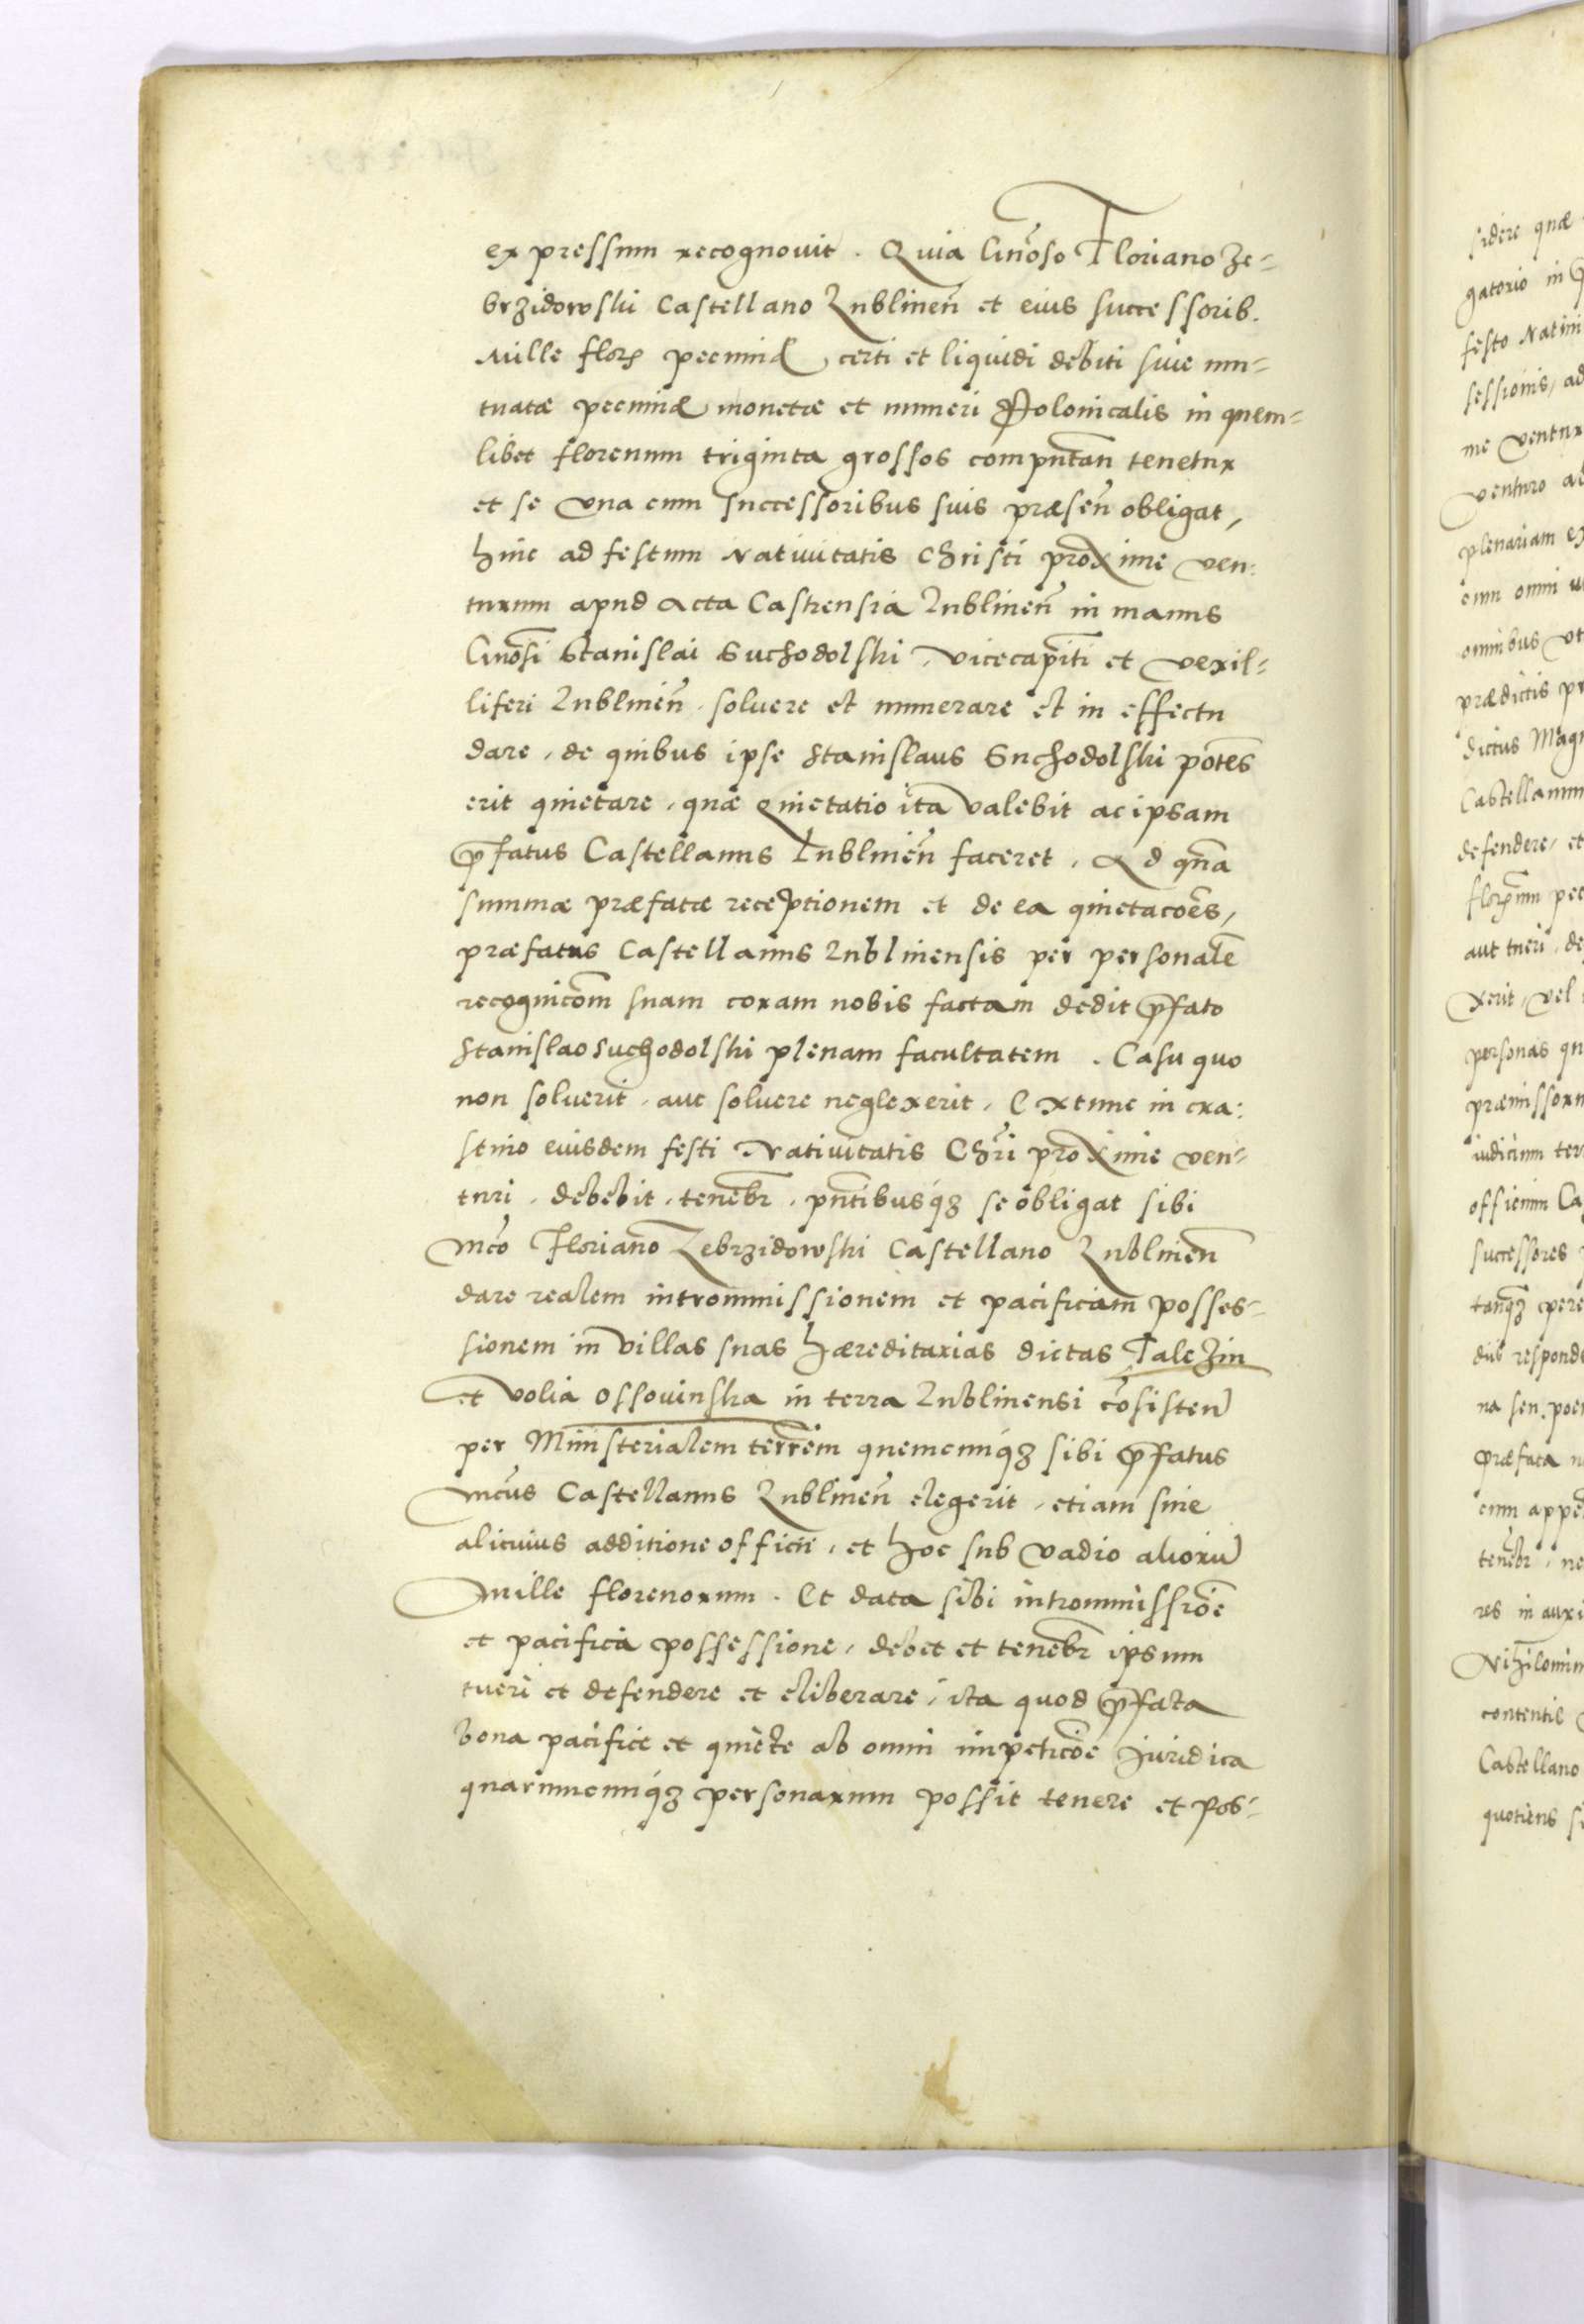 expressum recognouit. Quia Gnoso Floriano Ze-
brzidowski Castellano Lublinen et eius successorib.
Mille flor pecuniæ, certi et liquidi debiti siue mu-
tuatæ pecuniæ monetæ et numeri Polonicalis in quem-
libet florenum triginta grossos computan tenetur
et se vna cum successoribus suis præsen obligat,
hinc ad festum Natiuitatis Christi proxime ven-
turum apud Acta Castrensia Lublinen in manus
Gnosi Stanislai Suchodolski, vicecapiti et vexil-
liferi Lublinen, soluere et numerare et in effectu
dare, de quibus ipse Stanislaus Suchodolski potes
erit quietare, quæ quietatio ita valebit ac ipsam
pfatus Castellanus Lublinen faceret, Ad qua
summæ præfatæ receptionem et de ea quietacoes,
præfatus Castellanus Lublinensis per personale
recognicom suam coram nobis factam dedit pfato
Stanislao Suchodolski plenam facultatem. Casu quo
non soluerit, aut soluere neglexerit, Extunc in cra-
stino eiusdem festi Natiuitatis Chri proxime ven-
turi, debebit, tenebr, pntibusq3 se obligat sibi
Mco Floriano Zebrzidowski Castellano Lublinen
dare realem intromissionem et pacificam posses-
sionem in villas suas hæreditarias dictas Talezin
et Volia Ossouinska in terra Lublinensi cosisten
per Ministerialem terrem quemcunq3 sibi pfatus
Mcus Castellanus Lublinen elegerit, etiam sine
alicuius additione officii, et hoc sub vadio alioru
Mille florenorum. Et data sibi intromissioe
et pacifica possessione, debet et tenebr ipsum
tueri et defendere et eliberare, ita quod pfata
bona pacifice et quiete ab omni impeticoe juridica
quarumcunq3 personarum possit tenere et pos-
sidere quæ
gatorio in
festo Natiui
sessionis, ad
me ventur
venturo ad
plenariam ex
cum omni
omnibus vt
prædictis pr
dictus Magn
Castellanum
defendere, et
pec
aut tueri, de
xerit, vel
personas qu
præmissoru
iudicium ter
officium Ca
successores
tanq3 pere
responde
na seu poe
præfata
cum appe
tenebr, ne
res in auxi
Nihilomin
Castellano
quotiens si